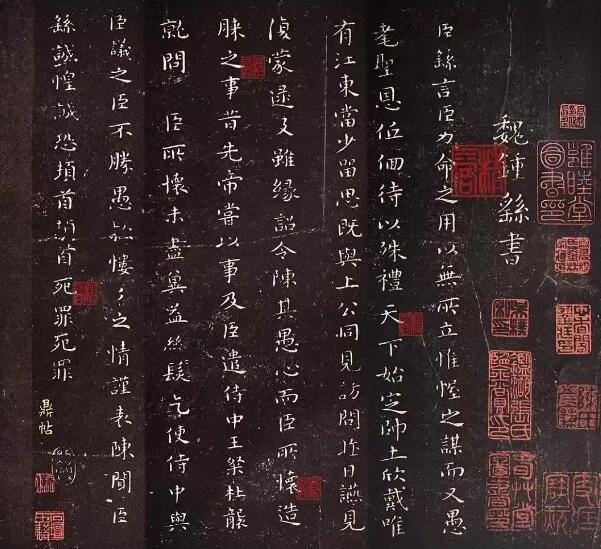 魏鍾繇書
臣繇言臣力命之用以無所立惟幄之謀而又愚
耄聖恩低佪待以殊禮天下始定帥土欣戴唯
有江東當少留思既與上公同見訪問昨日燕見
蒙逮及雖緣詔令陳其愚心而臣所懷造
膝之事昔先帝嘗以事及臣遣侍中王粲杜襲
就問 臣所懷未盡冀益絲髮乞使侍中與
臣議之臣不勝愚款慺々之情謹表陳聞臣
繇誠惶誠恐頓首頓首死罪死罪
鼎帖